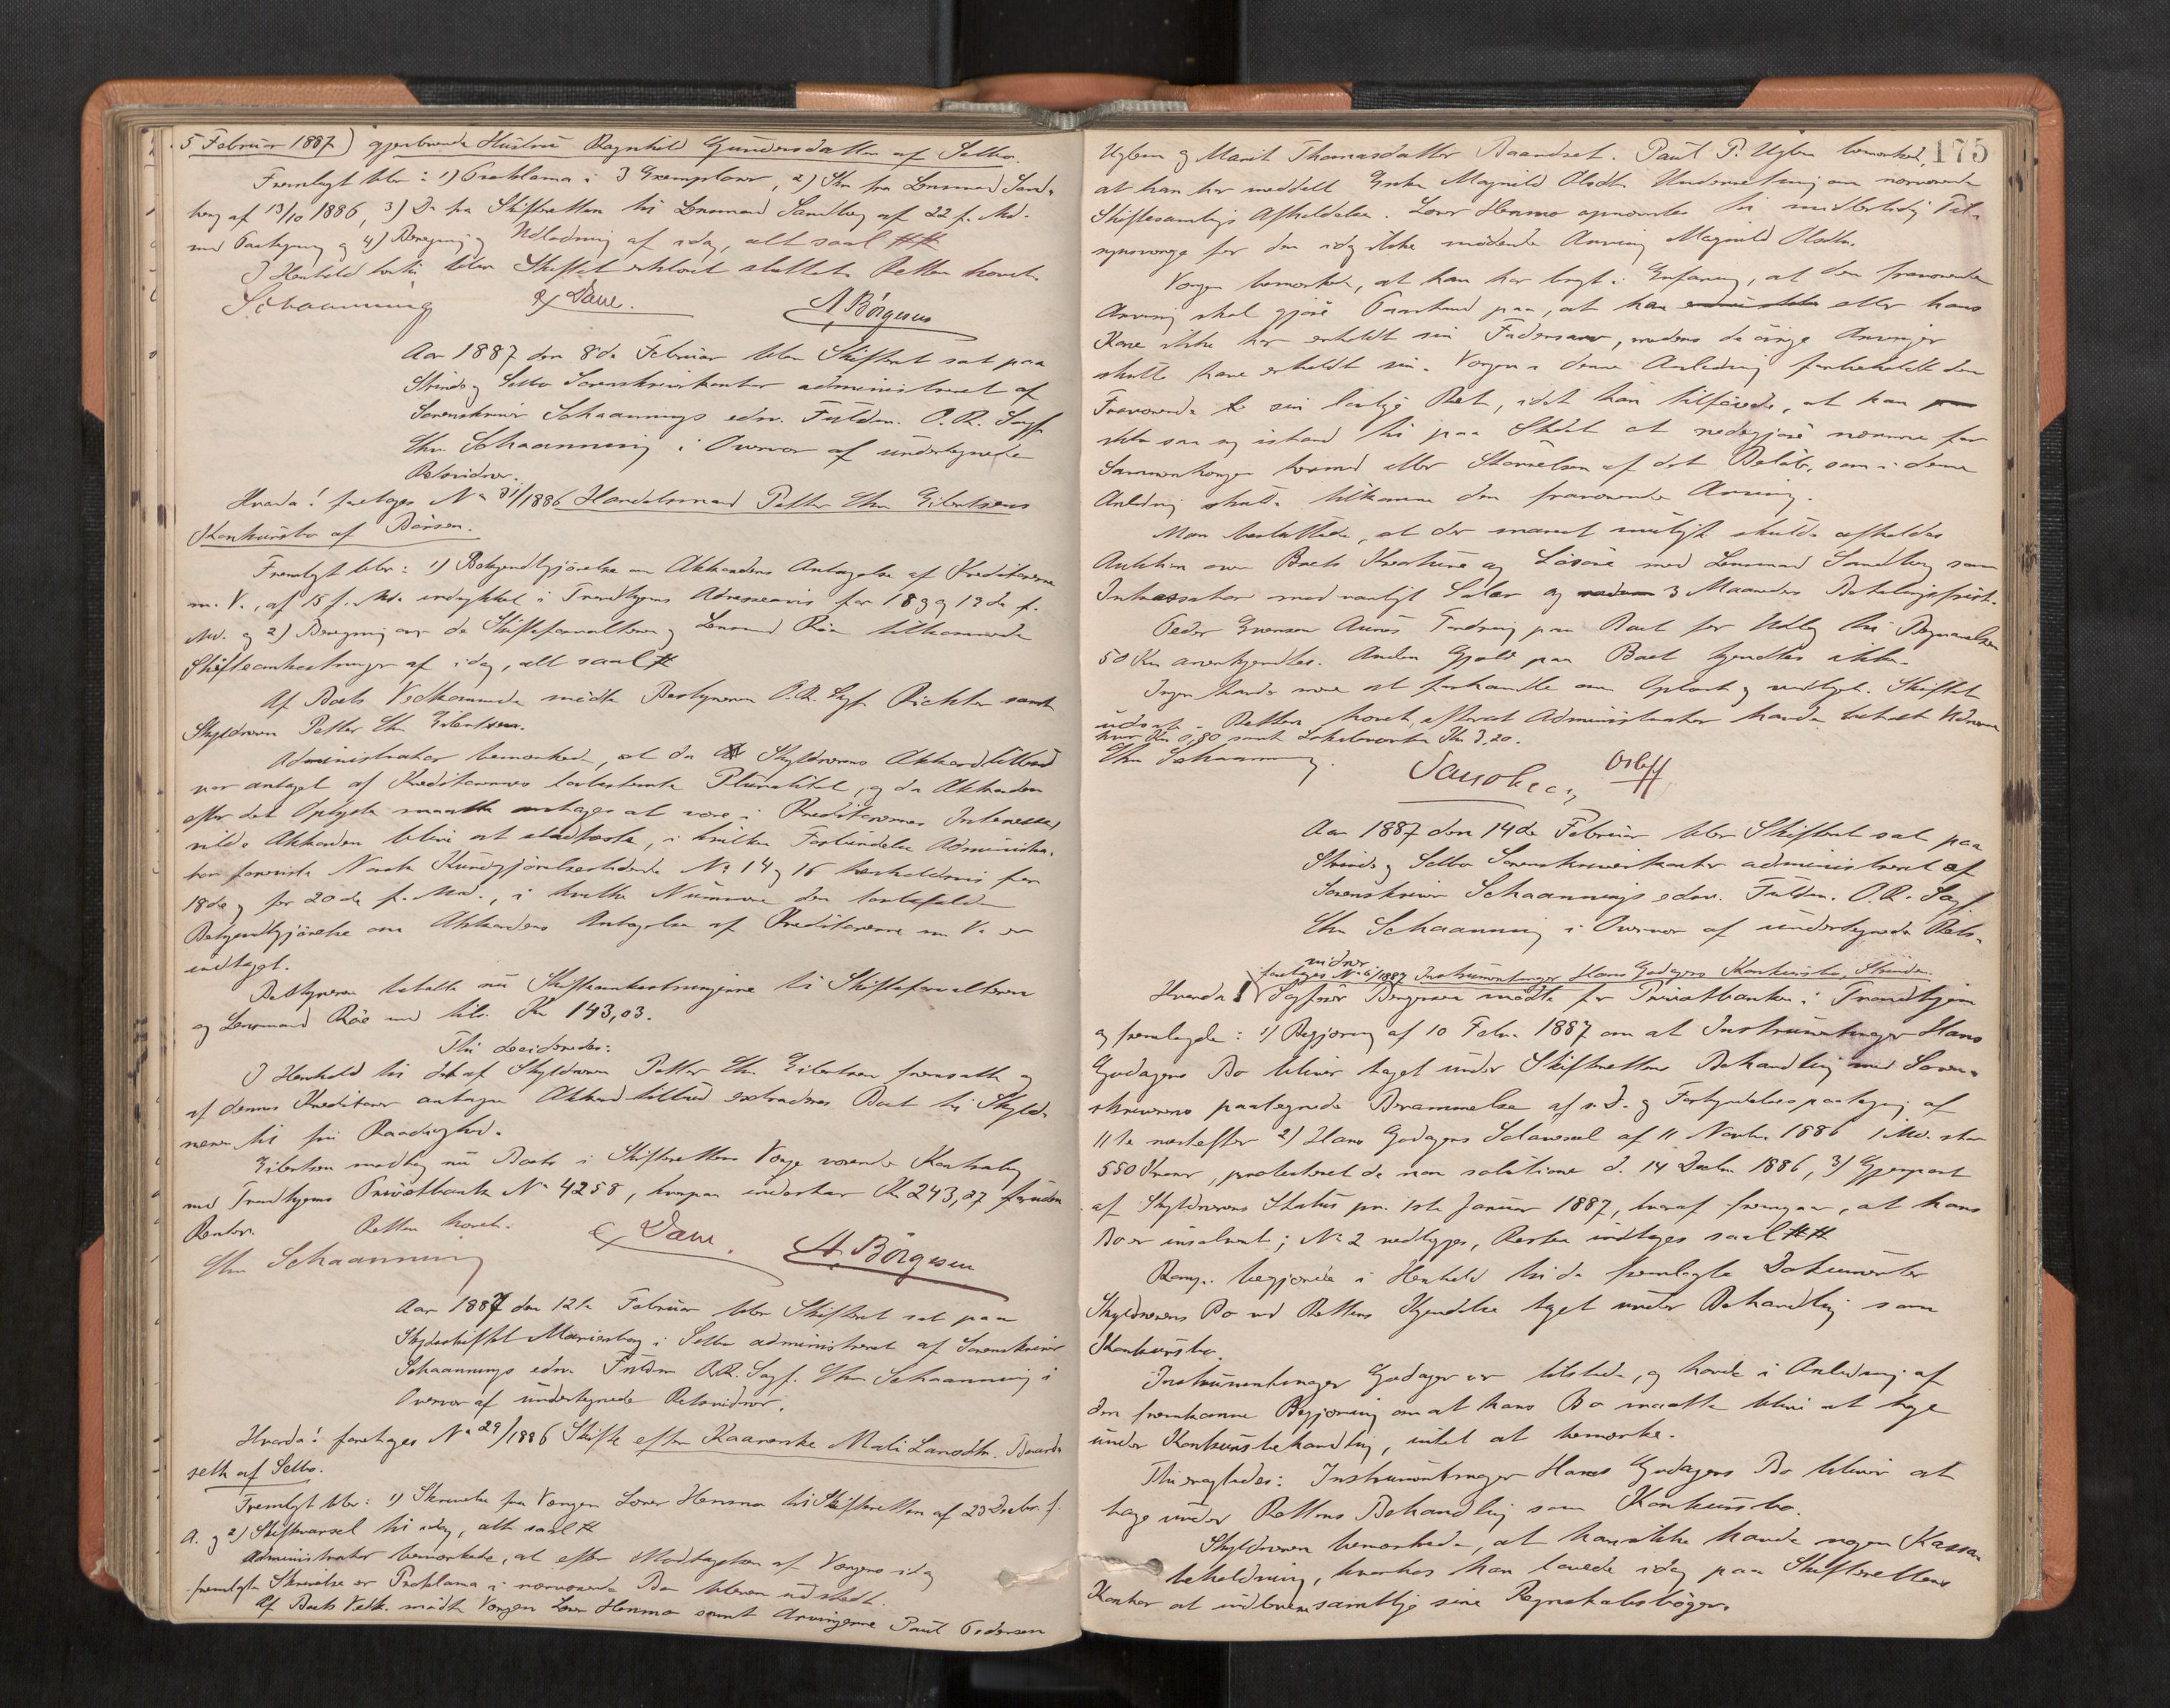 5 Februar 1887) gjenboende Hustru Ragnhild Gundersdatter af Selbo.
Fremlagt blev: 1) Proklama i 3 Exemplarer, 2) Skr. fra Lensmand Sand-
berg af 13/10 1886, 3) Do fra Skifteretten til Lensmand Sandberg af 22 f. Md.
med Paategning og 4) Beregning og Udlodning af idag, alt saal.
I Henhold hertil blev Skiftet erklæret sluttet. Retten hævet.
Schaanning Dave. A Börgesen
Aar 1887 den 8de Februar blev Skifteret sat paa
Strinde og Selbo Sorenskriverkontor administreret af
Sorenskriver Schaannings edsv. Fuldm. O.R. Sagf.
Chr. Schaanning i Overvær af undertegnede
Retsvidner.
Hvorda! foretages No 31/1886 Handelsmand Petter Chr. Eilertsens
Konkursbo af Börsen.
Fremlagt blev: 1) Bekjendtgjörelse om Akkordens Antagelse af Kreditorerne
m. V., af 15 f. Md. indrykket i Trondhjems Adresseavis for 18 og 19de f.
Md. og 2) Beregning over de Skifteforvalteren og Lensmand Röe tilkommende
Skifteomkostninger af idag, alt saal.
Af Boets Vedkommende mödte Bestyreren O.R. Sagf. Richter samt
Skyldneren Petter Chr. Eilertsen.
Administrator bemærkede, at da Skyldnerens Akkordtilbud
var antaget af Kreditorernes lovbestemte Pluralitet, og da Akkorden
efter det Oplyste maatte antages at være i Kreditorernes Interesse,
vilde Akkorden blive at stadfæste, i hvilken Forbindelse Administra-
tor foreviste Norsk Kundgjörelsestidende No 14 og 16 henholdsvis for
18de og for 20de f. Md., i hvilke Numere den lovbefalede
Bekjendtgjörelse om Akkordens Antagelse af Kreditorerne m. V. er
indtaget.
Bestyreren betalte nu Skifteomkostningerne til Skifteforvalteren
og Lensmand Röe med tils. Kr 143,03.
Thi decideredes:
I Henhold til det af Skyldneren Petter Chr. Eilertsen fremsatte og
af dennes Kreditorer antagne Akkordtilbud extraderes Boet til Skyld-
neren til fri Raadighed.
Eilertsen modtog nu Boets i Skifterettens Værge værende Kontrabog
med Trondhjems Privatbank No 4258, hvorpaa indestaar Kr 243,27 foruden
Renter. Retten hævet.
Chr Schaanning Dave. A. Börgesen
Aar 1887 den 12te Februar blev Skifteret sat paa
Skydsskiftet Marienborg i Selbo administreret af Sorenskriver
Schaannings edsv. Fuldm O.R. Sagf. Chr Schaanning i
Overvær af undertegnede Retsvidner.
Hvorda! foretages No 29/1886 Skifte efter Kaarenke Mali Larsdtr. Baard-
seth af Selbo.
Fremlagt blev: 1) Skrivelse fra Værgen Lorns Henmo til Skifteretten af 28 Decbr. f.
A. og 2) Skiftevarsel til idag, alt saal.
Administrator bemærkede, at efter Modtagelsen af Værgens idag
fremlagte Skrivelse er Proklama i nærværende Bo bleven udstedt.
Af Boets Vedk. mödte Værgen Henmo samt Arvingerne Paul Pedersen
175
Uglem og Marit Thomasdatter Baardset. Paul P. Uglem bemærkede,
at han har meddelt Enke Magnild Olsdtr Underretning om nærværende
Skiftesamlings Afholdelse. Henmo opnævntes til midlertidig Til-
synsværge for den idag ikke mödende Arving Magnild Olsdtr.
Værgen bemærkede, at han har bragt i Erfaring, at den fraværende
Arving skal gjöre Paastand paa, at han eller hans
Kone ikke har erholdt sin Fædrenearv, medens de övrige Arvinger
skulle have erholdt sin. Værgen i denne Anledning forbeholdt den
Fraværende sin lovlige Ret, idet han tilföiede, at han
ikke saa sig istand til paa Stedet at redegjöre nærmere for
Sammenhængen hermed eller Störrelsen af det Belöb, som i denne
Anledning skulde tilkomme den fraværende Arving.
Man besluttede, at der snarest muligt skulde afholdes
Auktion over Boets Kreature og Lösöre med Lensmand Sandberg som
Inkassator med vanligt Salær og 3 Maaneders Betalingsfrist.
Peder Evensen Aunes Fordring paa Boet for Udlæg til Begravelsen
50 Kr anerkjendtes. Anden Gjæld paa Boet kjendtes ikke.
Ingen havde mere at forhandle om Oplæst og vedtaget. Skiftet
udsat. Retten hævet, efterat Administrator havde betalt Vidnerne
hver Kr 0,80 samt Lokaleværten Kr 3,20.
Chr Schaanning.
Aar 1887 den 14de Februar blev Skifteret sat paa
Strinde og Selbo Sorenskriverkontor administreret af
Sorenskriver Schaannings edsv. Fuldm. O.R. Sagf.
Chr Schaanning i Overvær af undertegnede Rets-
vidner
foretages No 6/1887 Instrumentmager Hans Gudagers Konkursbo, Strinden.
Hvorda! Sagförer Bergesen mödte for Privatbanken i Trondhjem
og fremlagde: 1) Begjæring af 10 Febr. 1887 om at Instrumentmager Hans
Gudagers Bo bliver taget under Skifterettens Behandling med Soren-
skriverens paategnede Berammelse af s. D. og Forkyndelsespaategning af
11te næstefter 2) Hans Gudagers Solavexel af 11 Novbr. 1886 1 Md. stor
550 Kroner, protesteret de non solutione d. 14 Decbr 1886, 3) Gjenpart
af Skyldnerens Status pr. 1ste Januar 1887, hvoraf fremgaar, at hans
Bo er insolvent; No 2 vedlægges, Resten indtages saal.
Komp. begjærede i Henhold til de fremlagte Dokumenter
Skyldnerens Bo ved Rettens Kjendelse taget under Behandling som
Konkursbo.
Instrumentmager Gudager var tilstede, og havde i Anledning af
den fremkomne Begjæring om at hans Bo maatte blive at tage
under Konkursbehandling, intet at bemærke.
Thi eragtedes: Instrumentmager Hans Gudagers Bo bliver at
tage under Rettens Behandling som Konkursbo.
Skyldneren bemærkede, at han ikke havde nogen Kassa-
beholdning, hvorhos han lovede idag paa Skifterettens
Kontor at indlevere samtlige sine Regnskabsböger.